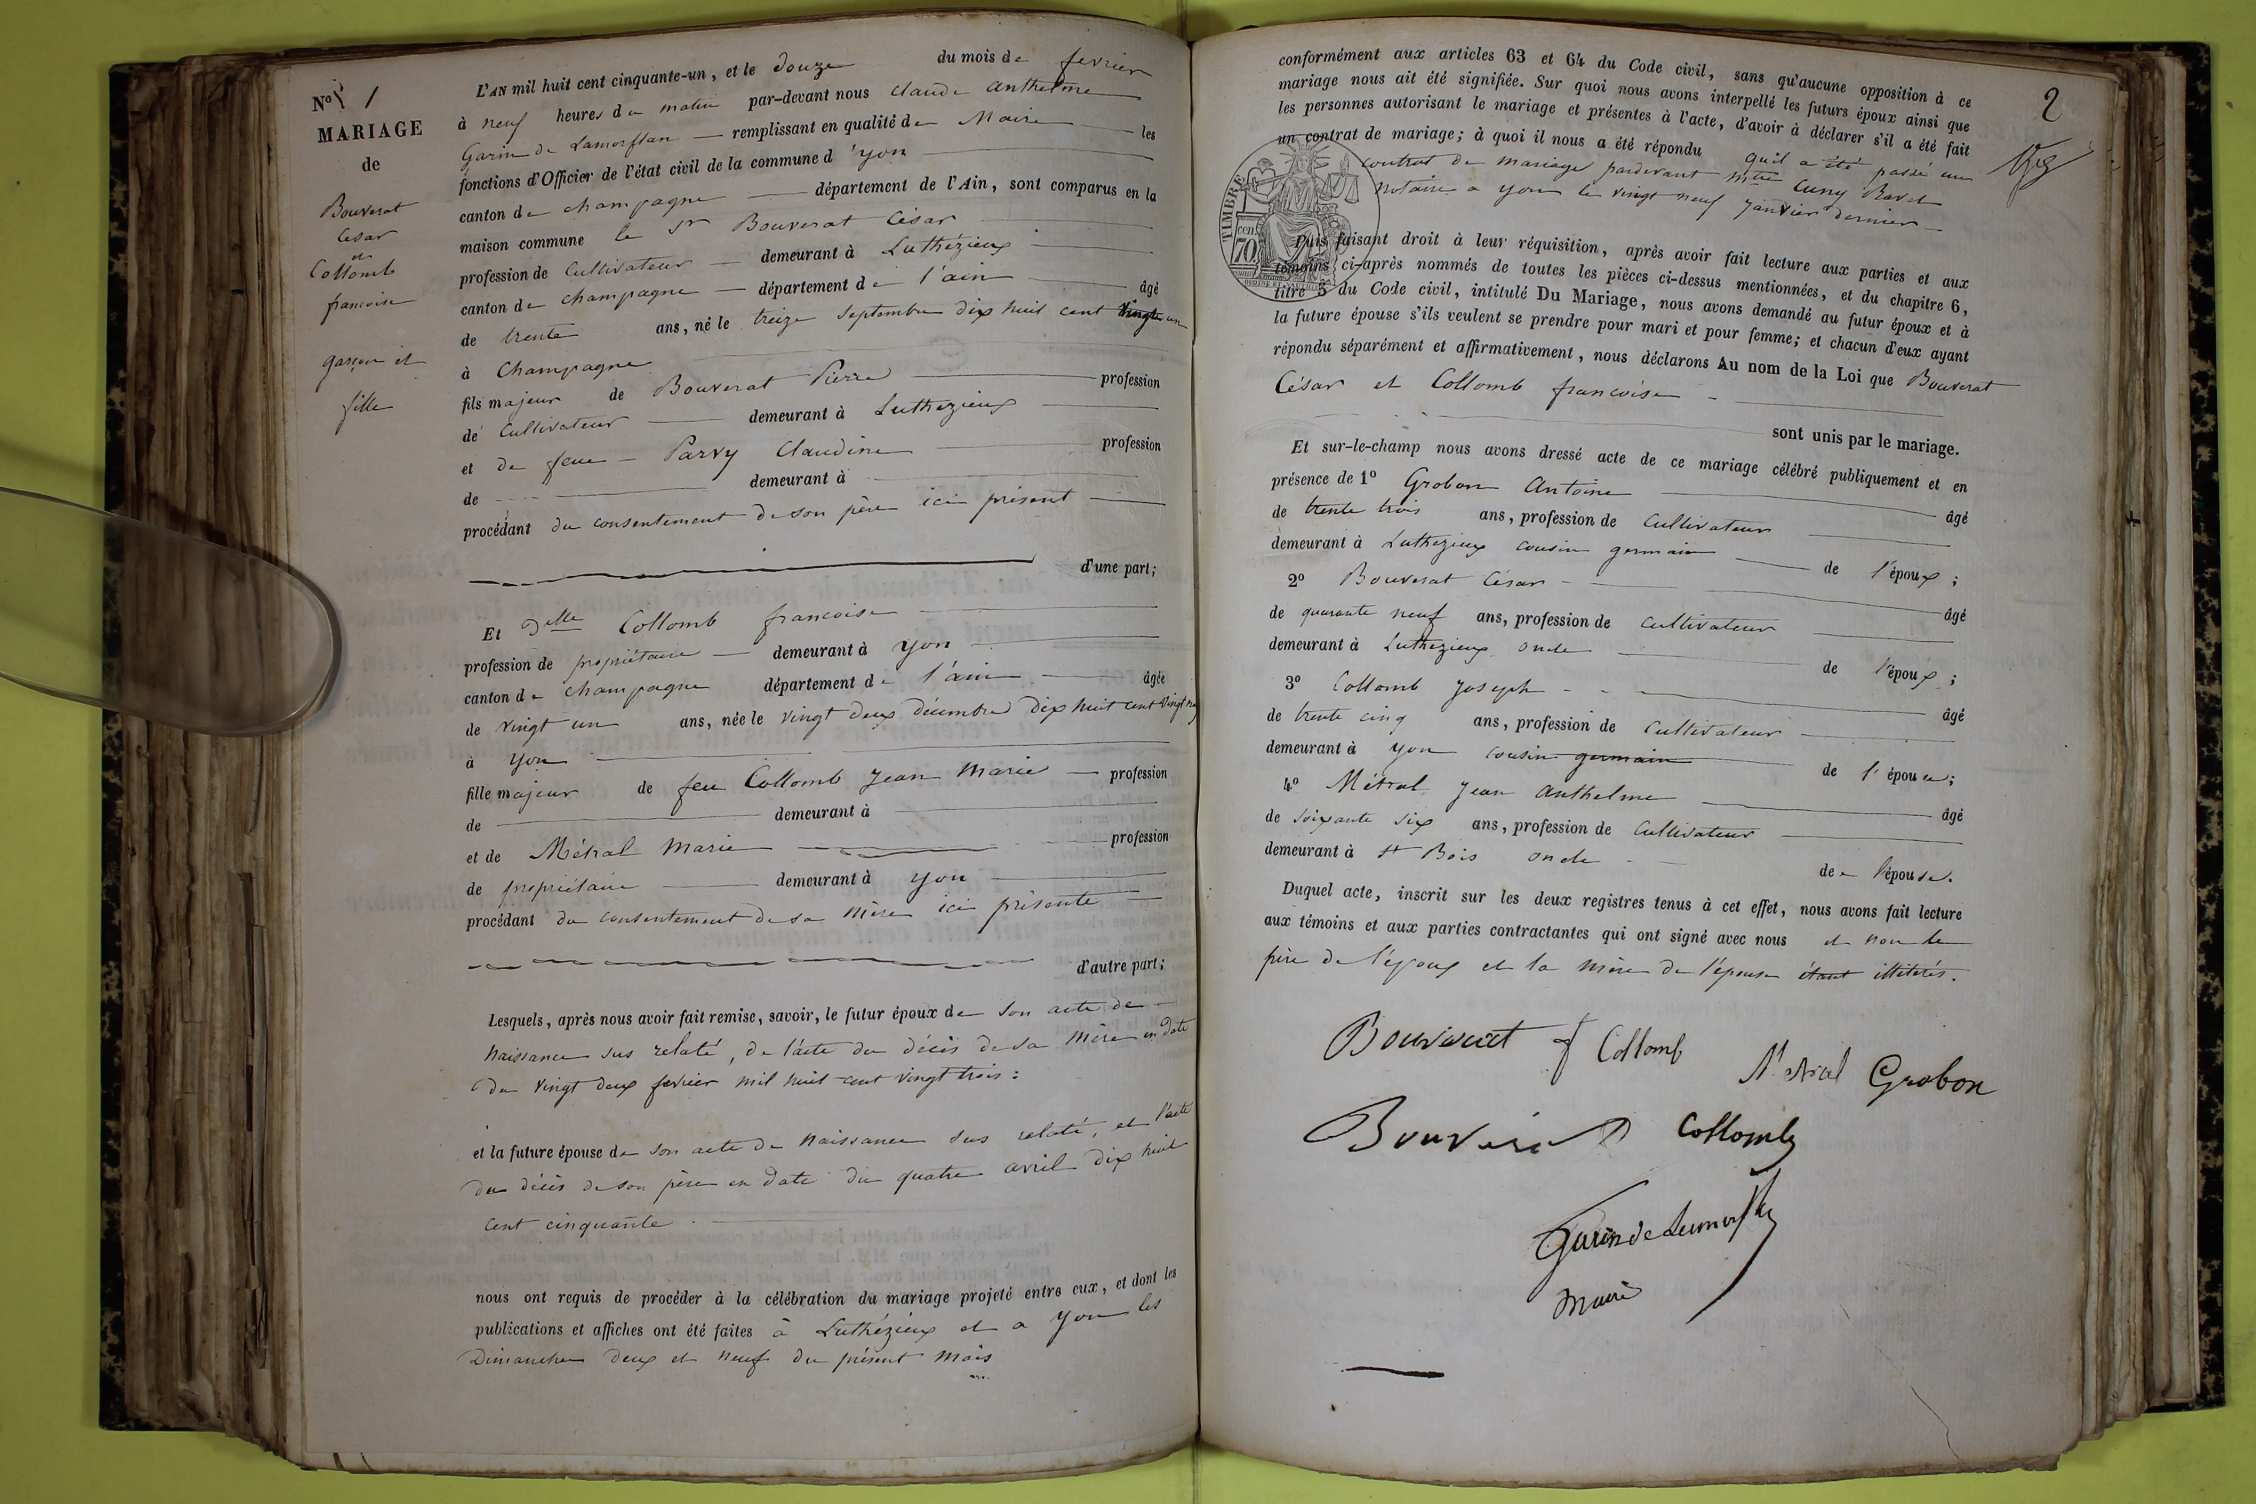 No 1
MARIAGE
de
Bouverat
César
et
Collomb
francoise
garçon et
fille
L'AN mil huit cent cinquante-un, et le douze du mois de fevrier
à neuf heures du matin par-devant nous claude anthelme
Garin de Lamorflan remplissant en qualité de Maire les
fonctions d'Officier de l'état civil de la commune d'yon
canton de champagne département de l'Ain, sont comparus en la
maison commune le Sr Bouverat César
profession de Cultivateur demeurant à Luthézieux
canton de champagne département de l'ain âgé
de trente ans, né le treize septembre dix huit cent vingt un
à Champagne
fils majeur de Bouverat Pierre profession
de Cultivateur demeurant à Luthezieux
et de feue Parvy Claudine profession
de demeurant à
procédant du consentement de son père ici présent
d'une part;
Et Delle Collomb francoise
profession de propriétaire demeurant à yon
canton de champagne département de l'ain âgée
de vingt un ans, née le vingt deux décembre dix huit cent vingt neuf
à yon
fille majeur de feu Collomb jean Marie profession
de demeurant à
et de Métral Marie profession
de propriétaire demeurant à yon
procédant du consentement de sa mère ici présente
d'autre part;
Lesquels, après nous avoir fait remise, savoir, le futur époux de son acte de
naissance sus relaté, de l'acte du décès de sa mère en date
du vingt deux fevrier mil huit cent vingt trois:
et la future épouse de son acte de naissance sus relaté, et l'acte
du décès de son père en date du quatre avril dix huit
cent cinquante.
nous ont requis de procéder à la célébration du mariage projeté entre eux, et dont les
publications et affiches ont été faites à Luthézieux et a yon les
Dimanches deux et neuf du présent mois
2
conformément aux articles 63 et 64 du Code civil, sans qu'aucune opposition à ce
mariage nous ait été signifiée. Sur quoi nous avons interpellé les futurs époux ainsi que
les personnes autorisant le mariage et présentes à l'acte, d'avoir à déclarer s'il a été fait
un contrat de mariage; à quoi il nous a été répondu qu'il a été passé un
contrat de mariage pardevant mtre Cuny Ravet
notaire a yon le vingt neuf janvier dernier
TIMBRE
cent.
70
Puis faisant droit à leur réquisition, après avoir fait lecture aux parties et aux
témoins ci-après nommés de toutes les pièces ci-dessus mentionnées, et du chapitre 6,
titre 5 du Code civil, intitulé Du Mariage, nous avons demandé au futur époux et à
la future épouse s'ils veulent se prendre pour mari et pour femme; et chacun d'eux ayant
répondu séparément et affirmativement, nous déclarons Au nom de la Loi que Bouverat
César et Collomb francoise
sont unis par le mariage.
Et sur-le-champ nous avons dressé acte de ce mariage célébré publiquement et en
présence de 1o Grobon Antoine âgé
de trente trois ans, profession de cultivateur
demeurant à Luthezieux cousin germain de l'époux;
2o Bouverat César âgé
de quarante neuf ans, profession de cultivateur
demeurant à Luthezieux oncle de l'époux;
3o Collomb joseph âgé
de trente cinq ans, profession de cultivateur
demeurant à yon cousin germain de l'épouse;
4o Métral jean anthelme âgé
de soixante six ans, profession de cultivateur
demeurant à St Bois oncle de l'épouse.
Duquel acte, inscrit sur les deux registres tenus à cet effet, nous avons fait lecture
aux témoins et aux parties contractantes qui ont signé avec nous et non le
père de l'époux et la mère de l'épouse étant illitérés.
Bouverat f Collomb
Métral Grobon
Bouverat Collomb
Garin de Lamorflan
Maire